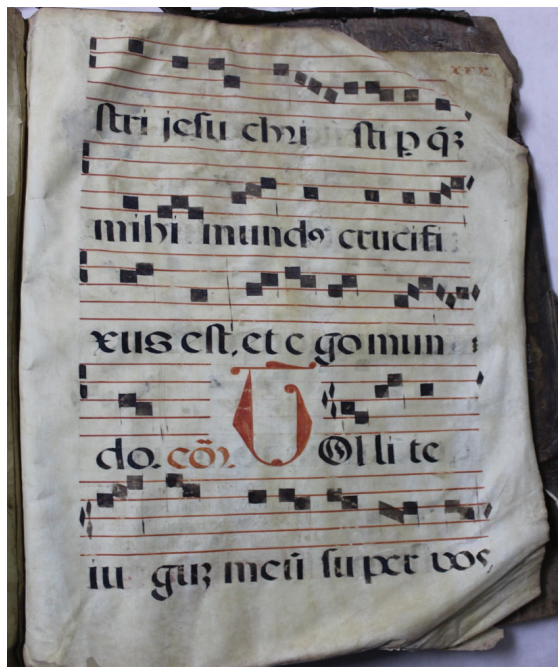 xxx
stri jesu chri sti p q̃ʒ
mihi mundꝯ crucifi
xus est, et e go mun
do. cõ. T Ol li te
iu guʒ meũ su per vos